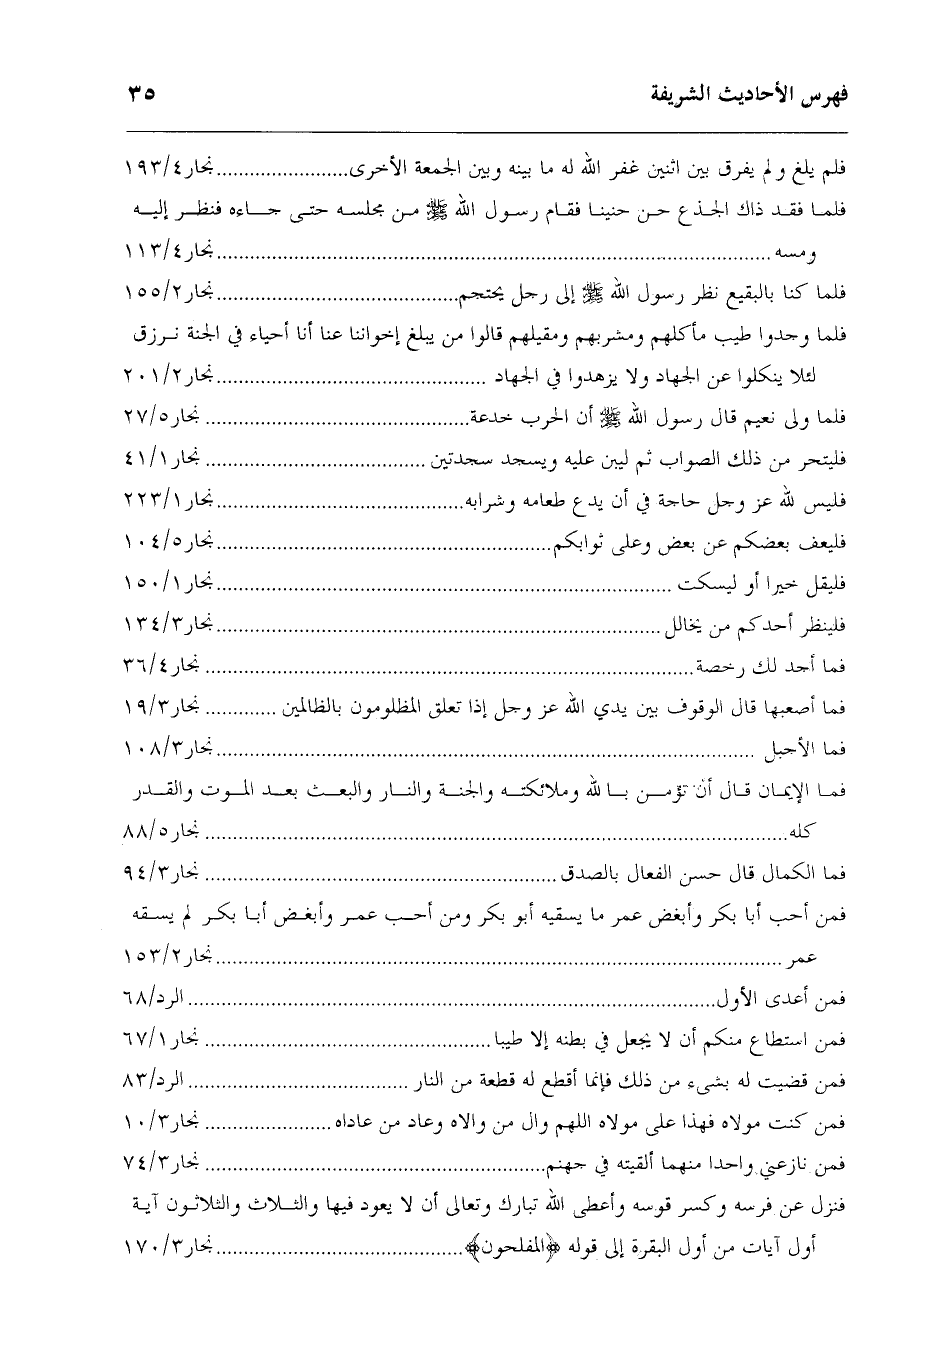 فهرس الأحاديث الشريفة ٣٥
فلم يلغ ولم يفرق بين اثنين غفر الله له ما بينه وبين الجمعة الأخرى........................نجار١٩٣/٤
فلما فقد ذاك الجذع حن حنينا فقام رسول الله ﷺ من مجلسه حتى جاءه فنظر إليه
ومسه.....................................................................................................نجار١١٣/٤
فلما كنا بالبقيع نظر رسول الله ﷺ إلى رجل يحتجم............................................نجار١٥٥/٢
فلما وجدوا طيب مأكلهم ومشربهم ومقيلهم قالوا من يبلغ إخواننا عنا أنا أحياء في الجنة نرزق
لئلا ينكلوا عن الجهاد ولا يزهدوا في الجهاد ................................................. نجار٢٠١/٢
فلما ولى نعيم قال رسول الله ﷺ أن الحرب خدعة................................................ نجار٢٧/٥
فليتحر من ذلك الصواب ثم ليبن عليه ويسجد سجدتين........................................ نجار٤١/١
فليس لله عز وجل حاجة في أن يدع طعامه وشرابه.............................................نجار٢٢٣/١
فليعف بعضكم عن بعض وعلى ثوابكم.............................................................نجار١٠٤/٥
فليقل خيرا أو ليسكت ...................................................................................نجار١٥٠/١
فلينظر أحدكم من يخالل.................................................................................نجار١٣٤/٣
فما أجد لك رخصة......................................................................................... نجار٣٦/٤
فما أصعبها قال الوقوف بين يدي الله عز وجل إذا تعلق المظلومون بالظالمين ............. نجار١٩/٣
فما الأجبل ..................................................................................................نجار١٠٨/٣
فما الإيمان قال أن تؤمن بالله وملائكته والجنة والنار والبعث بعد الموت والقدر
كله.......................................................................................................... نجار٨٨/٥
فما الكمال قال حسن الفعال بالصدق................................................................ نجار٩٤/٣
فمن أحب أبا بكر وأبغض عمر ما يسقيه أبو بكر ومن أحب عمر وأبغض أبا بكر لم يسقه
عمر.......................................................................................................نجار١٥٣/٢
فمن أعدى الأول................................................................................................ الرد/٦٨
فمن استطاع منكم أن لا يجعل في بطنه إلا طيبا.................................................... نجار٦٧/١
فمن قضيت له بشيء من ذلك فإنما أقطع له قطعة من النار ........................................ الرد/٨٣
فمن كنت مولاه فهذا على مولاه اللهم وال من والاه وعاد من عاداه....................... نجار١٠/٣
فمن نازعني واحدا منهما ألقيته في جهنم.............................................................. نجار٧٤/٣
فنزل عن فرسه وكسر قوسه وأعطى الله تبارك وتعالى أن لا يعود فيها والثلاث والثلاثون آية
أول آيات من أول البقرة إلى قوله ﴿المفلحون﴾.............................................نجار١٧٠/٣